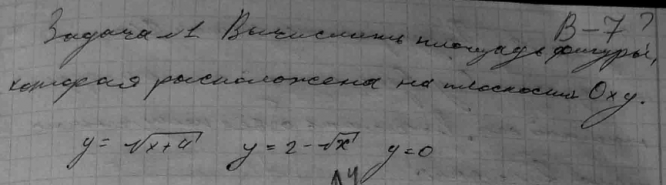 В-7?
Задача №1 Вычислить площадь фигуры,
которая расположена на плоскости Oxy.
y = √(x+4) y = 2 - √x y = 0